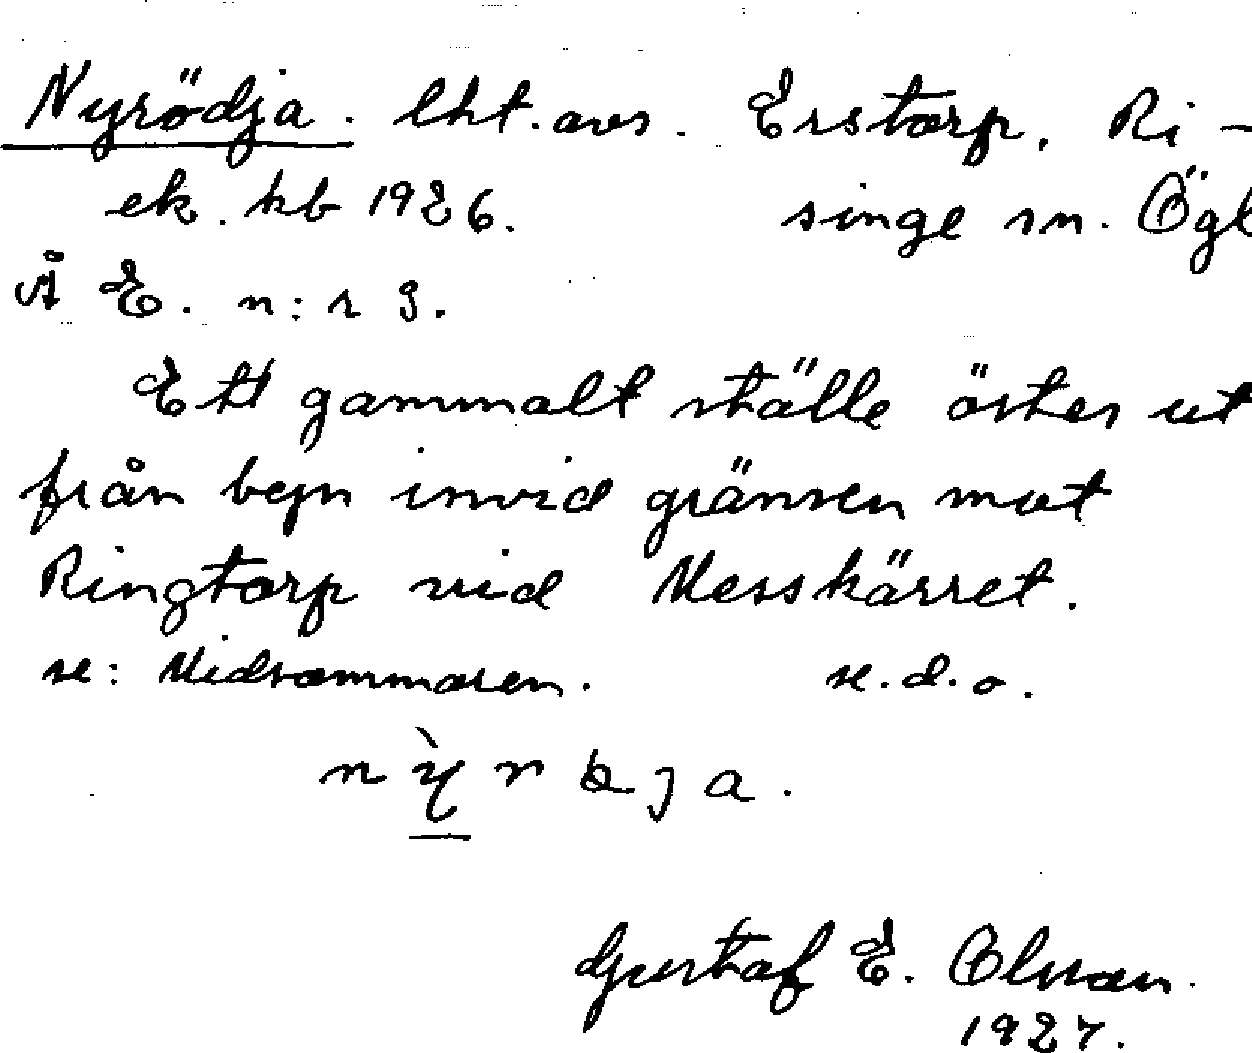 Nyrödja. lht. avs. Erstorp, Ri-
ek. kb 1926. singe sn. Ögl
Å E. n:r 3.
Ett gammalt ställe öster ut
från byn invid gränsen mot
Ringtorp vid Messkärret.
se: Midsommaren. s.d.o.
Gustaf E. Olsson.
1927.